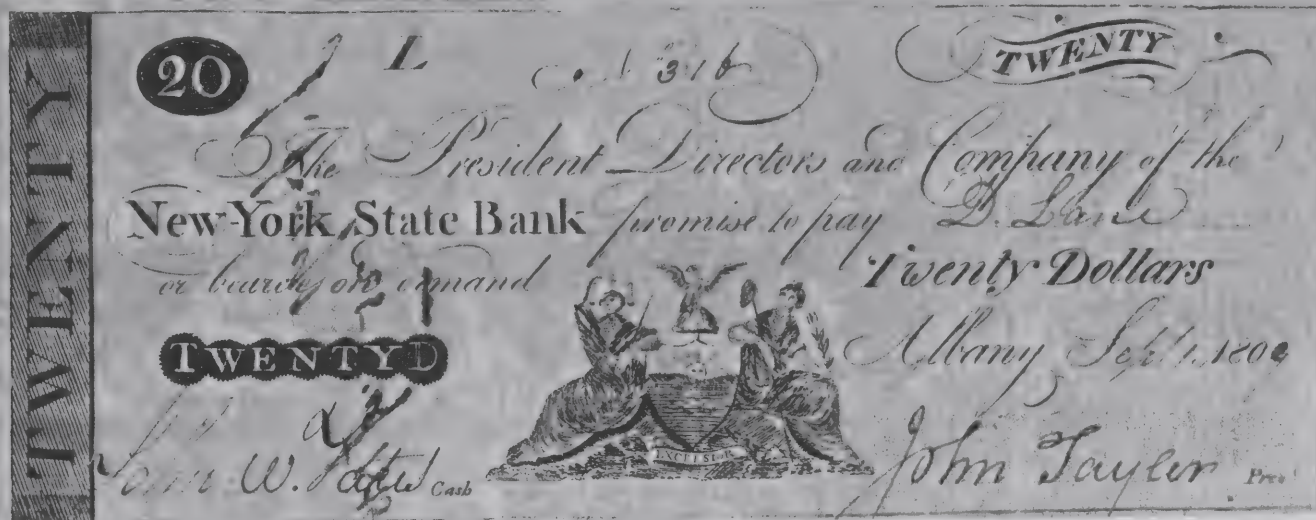 TWENTY
20 L 316 TWENTY
The President Directors and Company of the
New-York State Bank promise to pay D. Lane
or bearer on demand Twenty Dollars
TWENTY D
Albany Sept. 1. 180
EXCELSIOR
John W. Cash
John Tayler Pres